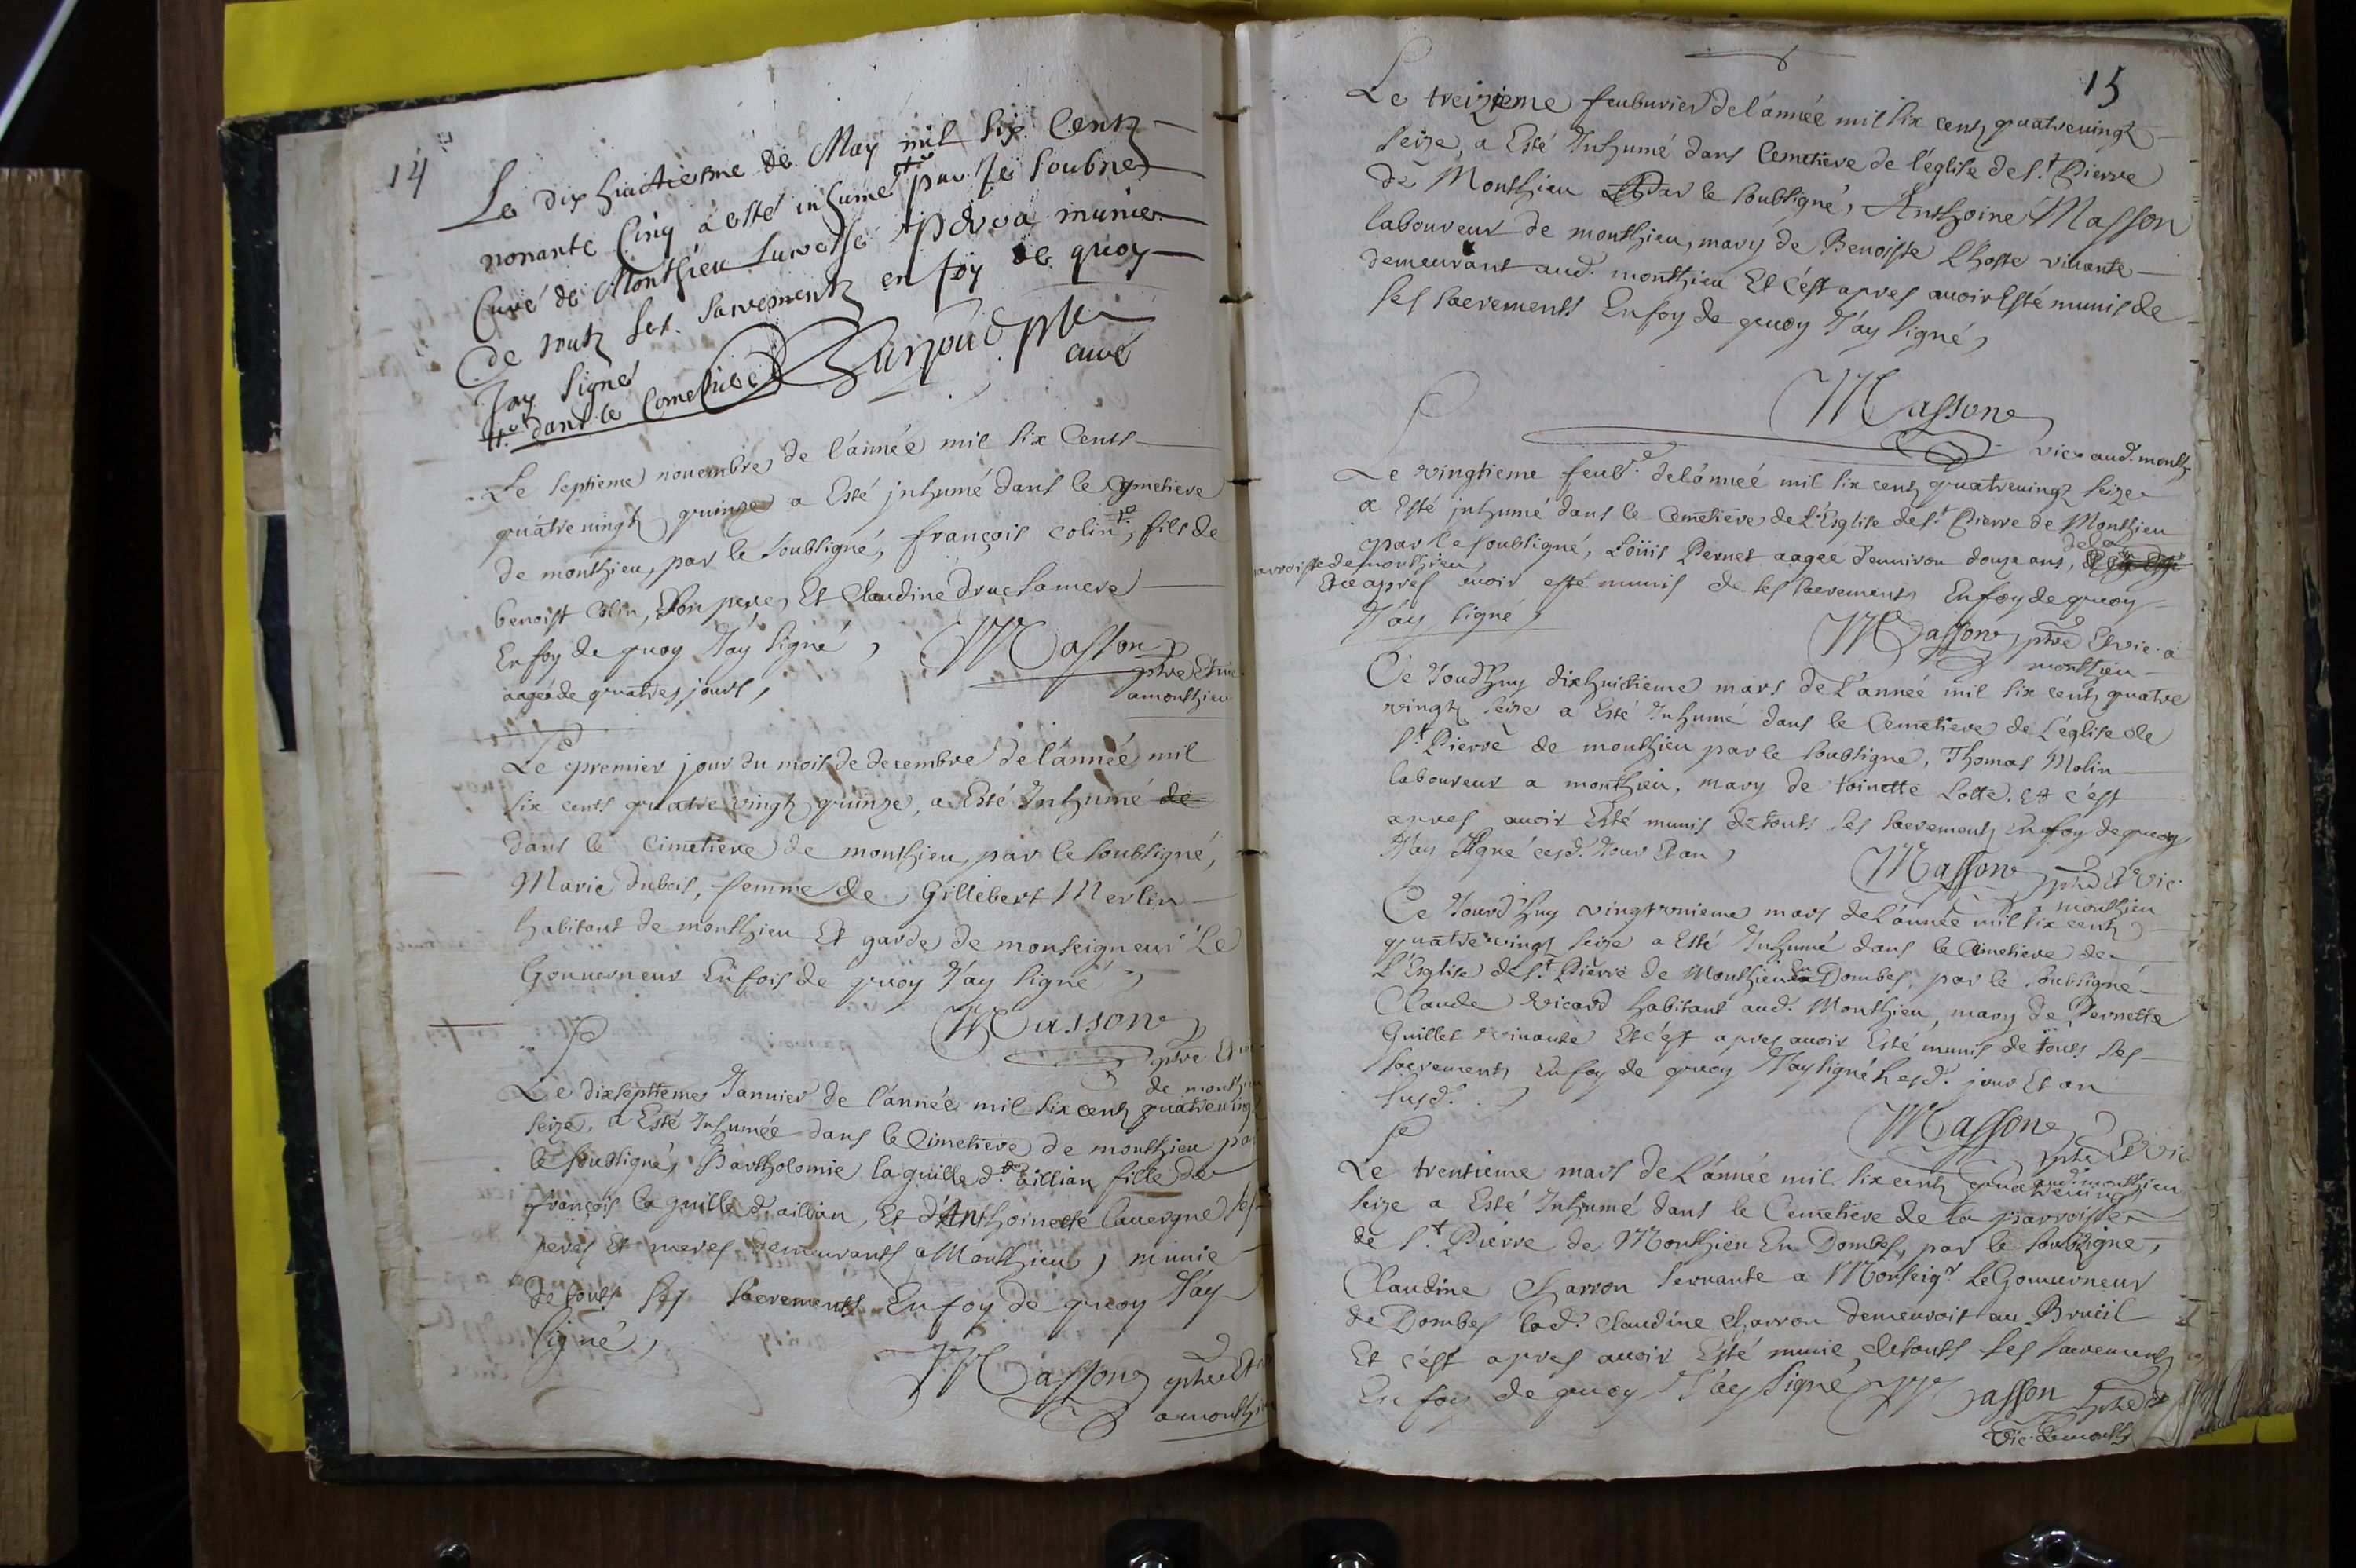 14
Le dix huictiesme de May mil six Centz
nonante Cinq a esté inhumé par Je soubnes
Curé de Monthieu Lucresse munie
de touts Ses Sacrements en foy de quoy
Jay Signé
curé
dans le Cometiere
Le septieme novembre de l'année mil six Cents
quatrevingtz quinze a Esté jnhumé dans le Cymetiere
de monthieu, par le soubsigné, françois colin, fils de
benoist Colin, Son pere, Et Claudine druc sa mere
En foy de quoy J'ay signé, Masson
aageé de quatres jours, ptre Et vic.
a monthieu
Le premier jour du mois de decembre de l'année mil
six cents quatre vingtz quinze, a Esté Inhumé de
dans le Cimetiere de monthieu, par le soubsigné,
Marie dubois, femme de Gillebert Merlin
habitant de monthieu Et garde de monseigneur Le
Gouuerneur En fois de quoy J'ay signé,
Masson
ptre Et
de monthieu
Le dixseptieme Januier de l'année mil six centz quatrevingt
seize, a Esté Inhumée dans le Cimetiere de monthieu par
le soubsigné, Bartholomie laguille d. aillian fille de
françois la guille d'aillian, Et d'Anthoinette lauergne ses
peres Et meres demeurants a Monthieu, munie
de touts ses sacrements En foy de quoy J'ay
signé,
Masson ptre Et
a monthieu
15
Le treizieme feuburier de l'année mil six centz quatrevingtz
seize, a Esté Inhumé dans Cemetiere de l'église de s.t Pierre
de Monthieu par le soubsigné, Anthoine Masson
laboureur de monthieu, mary de Benoiste Lhoste viuante
demeurant aud. monthieu Et c'est apres auoir Esté munis de
ses sacrements En foy de quoy J'ay signé,
Masson
vic. aud. month
Le vingtieme feub. de l'anneé mil six centz quatrevingtz seize
a Esté jnhumé dans le Cemetiere de L'Esglise de s.t Pierre de Monthieu
par le soubsigné, Loüis Pernet aagee d'enuiron douze ans, de la
parroisse de monthieu
Et ce apres auoir esté munis de ses sacrements En foy de quoy
J'ay signé,
Masson ptre Et vic. a
monthieu
Ce Jourdhuy dixhuictieme mars de L'anneé mil six centz quatre
vingtz seize a Esté Inhumé dans le Cemetiere de L'église de
s.t Pierre de monthieu par le soubsigné, Thomas Molin
laboureur a monthieu, mary de toinette Lotte, Et c'est
apres auoir Esté munis de touts ses sacrements En foy de quoy
J'ay signé cesd. Jour Et an,
Masson ptre Et Vic.
a monthieu
Ce Jourd'huy vingtunieme mars de L'année mil six centz
quatrevingt seize a Esté Inhumé dans le Cimetiere de
L'Esglise de s.t Pierre de Monthieu En Dombes, par le soubsigné
Claude Vicard habitant aud. Monthieu, mary de Pernette
Guillet viuante Et c'est apres auoir Esté munis de touts ses
sacrements En foy de quoy J'ay signé Lesd. jour Et an
susd.
Masson
ptre Et Vic.
aud. monthieu
Le trentieme mars de L'année mil six centz quatrevingt
seize a Esté Inhumé dans le Cemetiere de la parroisse
de s.t Pierre de Monthieu En Dombes, par le soubsigné,
Claudine Charron seruante a Monseig.r Le Gouuerneur
de Dombes lad. Claudine Charron demeuroit au Brueil
Et c'est apres auoir Esté munie de touts ses sacrements
En foy de quoy J'ay signé Masson ptre Et
Vic. de month